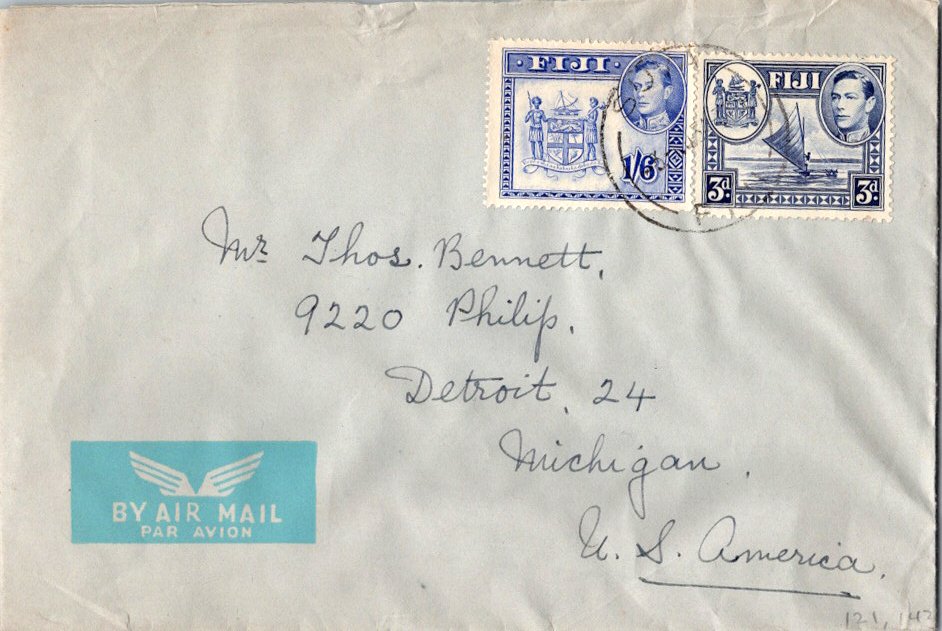 FIJI
1/6
FIJI
3d
3d
Mr Thos. Bennett,
9220 Philip.
Detroit, 24
Michigan.
U. S. America.
BY AIR MAIL
PAR AVION
121, 142